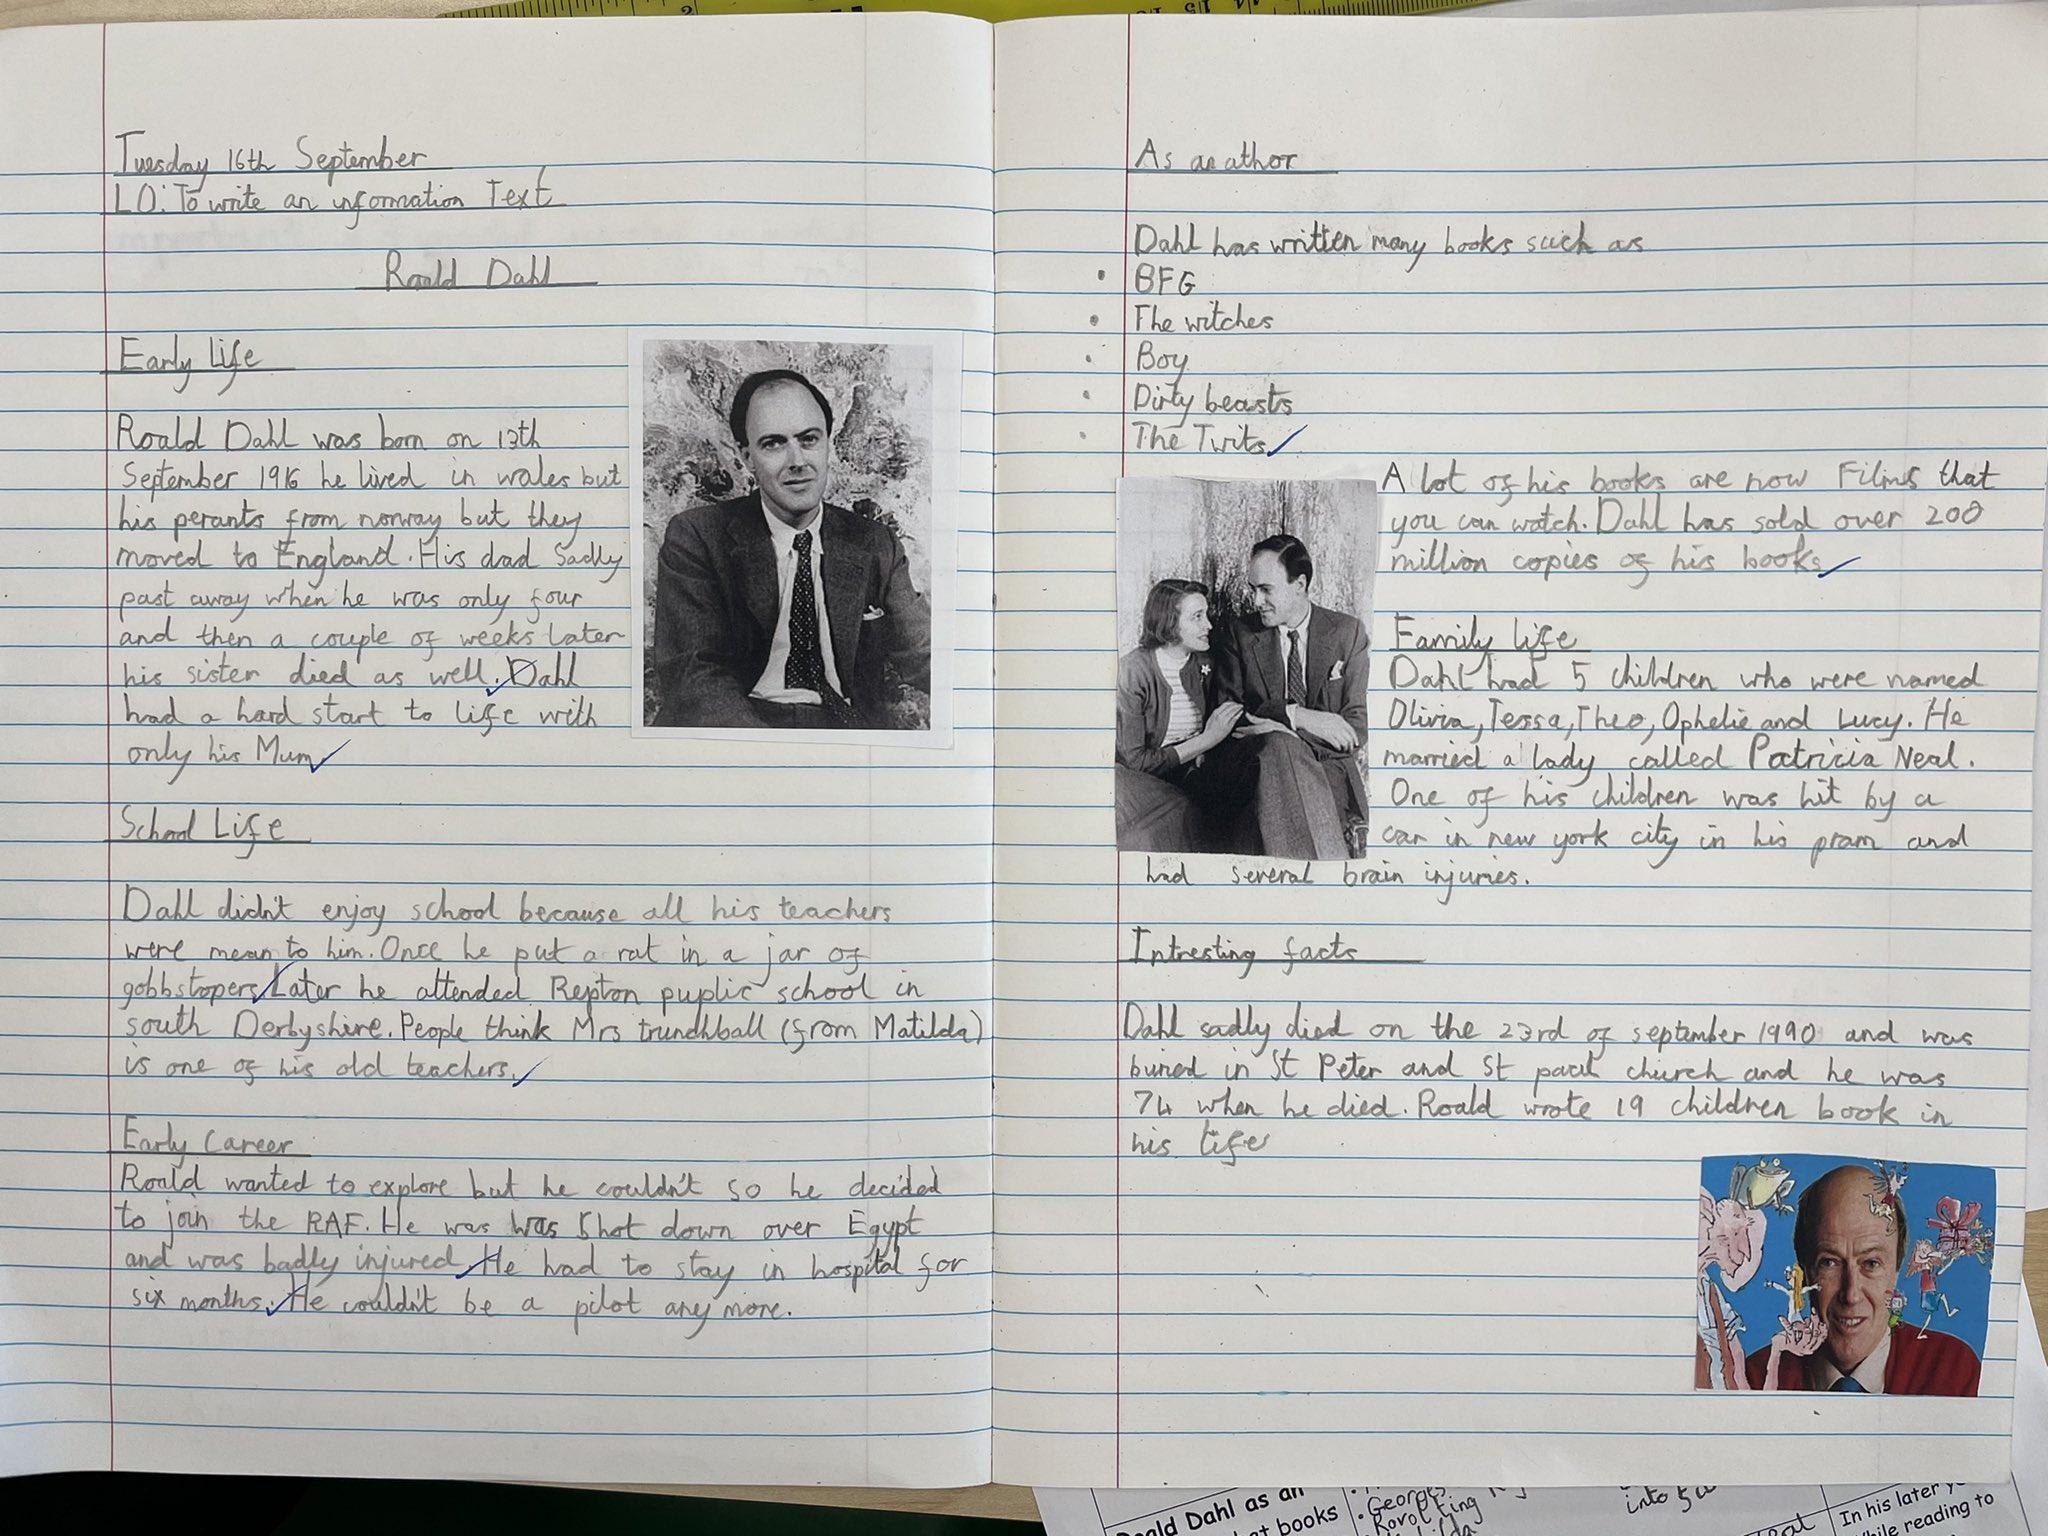 Tuesday 16th September
LO: To write an information Text
Roald Dahl
Early Life
Roald Dahl was born on 13th
September 1916 he lived in wales but
his perants from norway but they
moved to England. His dad Sadly
past away when he was only four
and then a couple of weeks Later
his sister died as well. Dahl
had a hard start to life with
only his Mum
School Life
Dahl didn't enjoy school because all his teachers
were mean to him. Once he put a rat in a jar of
gobbstopers. Later he attended Repton puplic school in
south Derbyshire. People think Mrs trunchball (from Matilda)
is one of his old teachers.
Early Career
Roald wanted to explore but he couldn't so he decided
to join the RAF. He was was Shot down over Egypt
and was badly injured. He had to stay in hospital for
six months. He couldn't be a pilot any more.
As an athor
Dahl has written many books such as
• BFG
• The witches
• Boy
• Dirty beasts
• The Twits
A lot of his books are now Films that
you can watch. Dahl has sold over 200
million copies of his books
Family life
Dahl had 5 children who were named
Olivia, Tessa, Theo, Ophelie and Lucy. He
married a lady called Patricia Neal.
One of his children was hit by a
car in new york city in his pram and
had several brain injuries.
Intresting facts
Dahl sadly died on the 23rd of september 1990 and was
buried in St Peter and St paul church and he was
74 when he died. Roald wrote 19 children book in
his life
Dahl as an
books
• Georges
into
In his later
while reading to